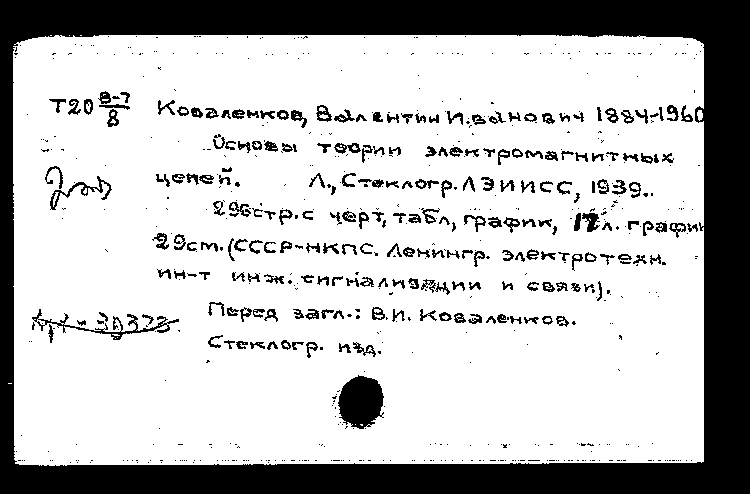 Т20 В-7/8 Коваленков, Валентин Иванович 1884-1960
Основы теории электромагнитных
цепей. Л., Стеклогр. ЛЭИИСС, 1939.
296стр. с черт, табл, график, 17л. графин
29см. (СССР-НКПС. Ленингр. электротехн.
ин-т инж. сигнализации и связи).
Перед загл.: В.И. Коваленков.
Стеклогр. изд.